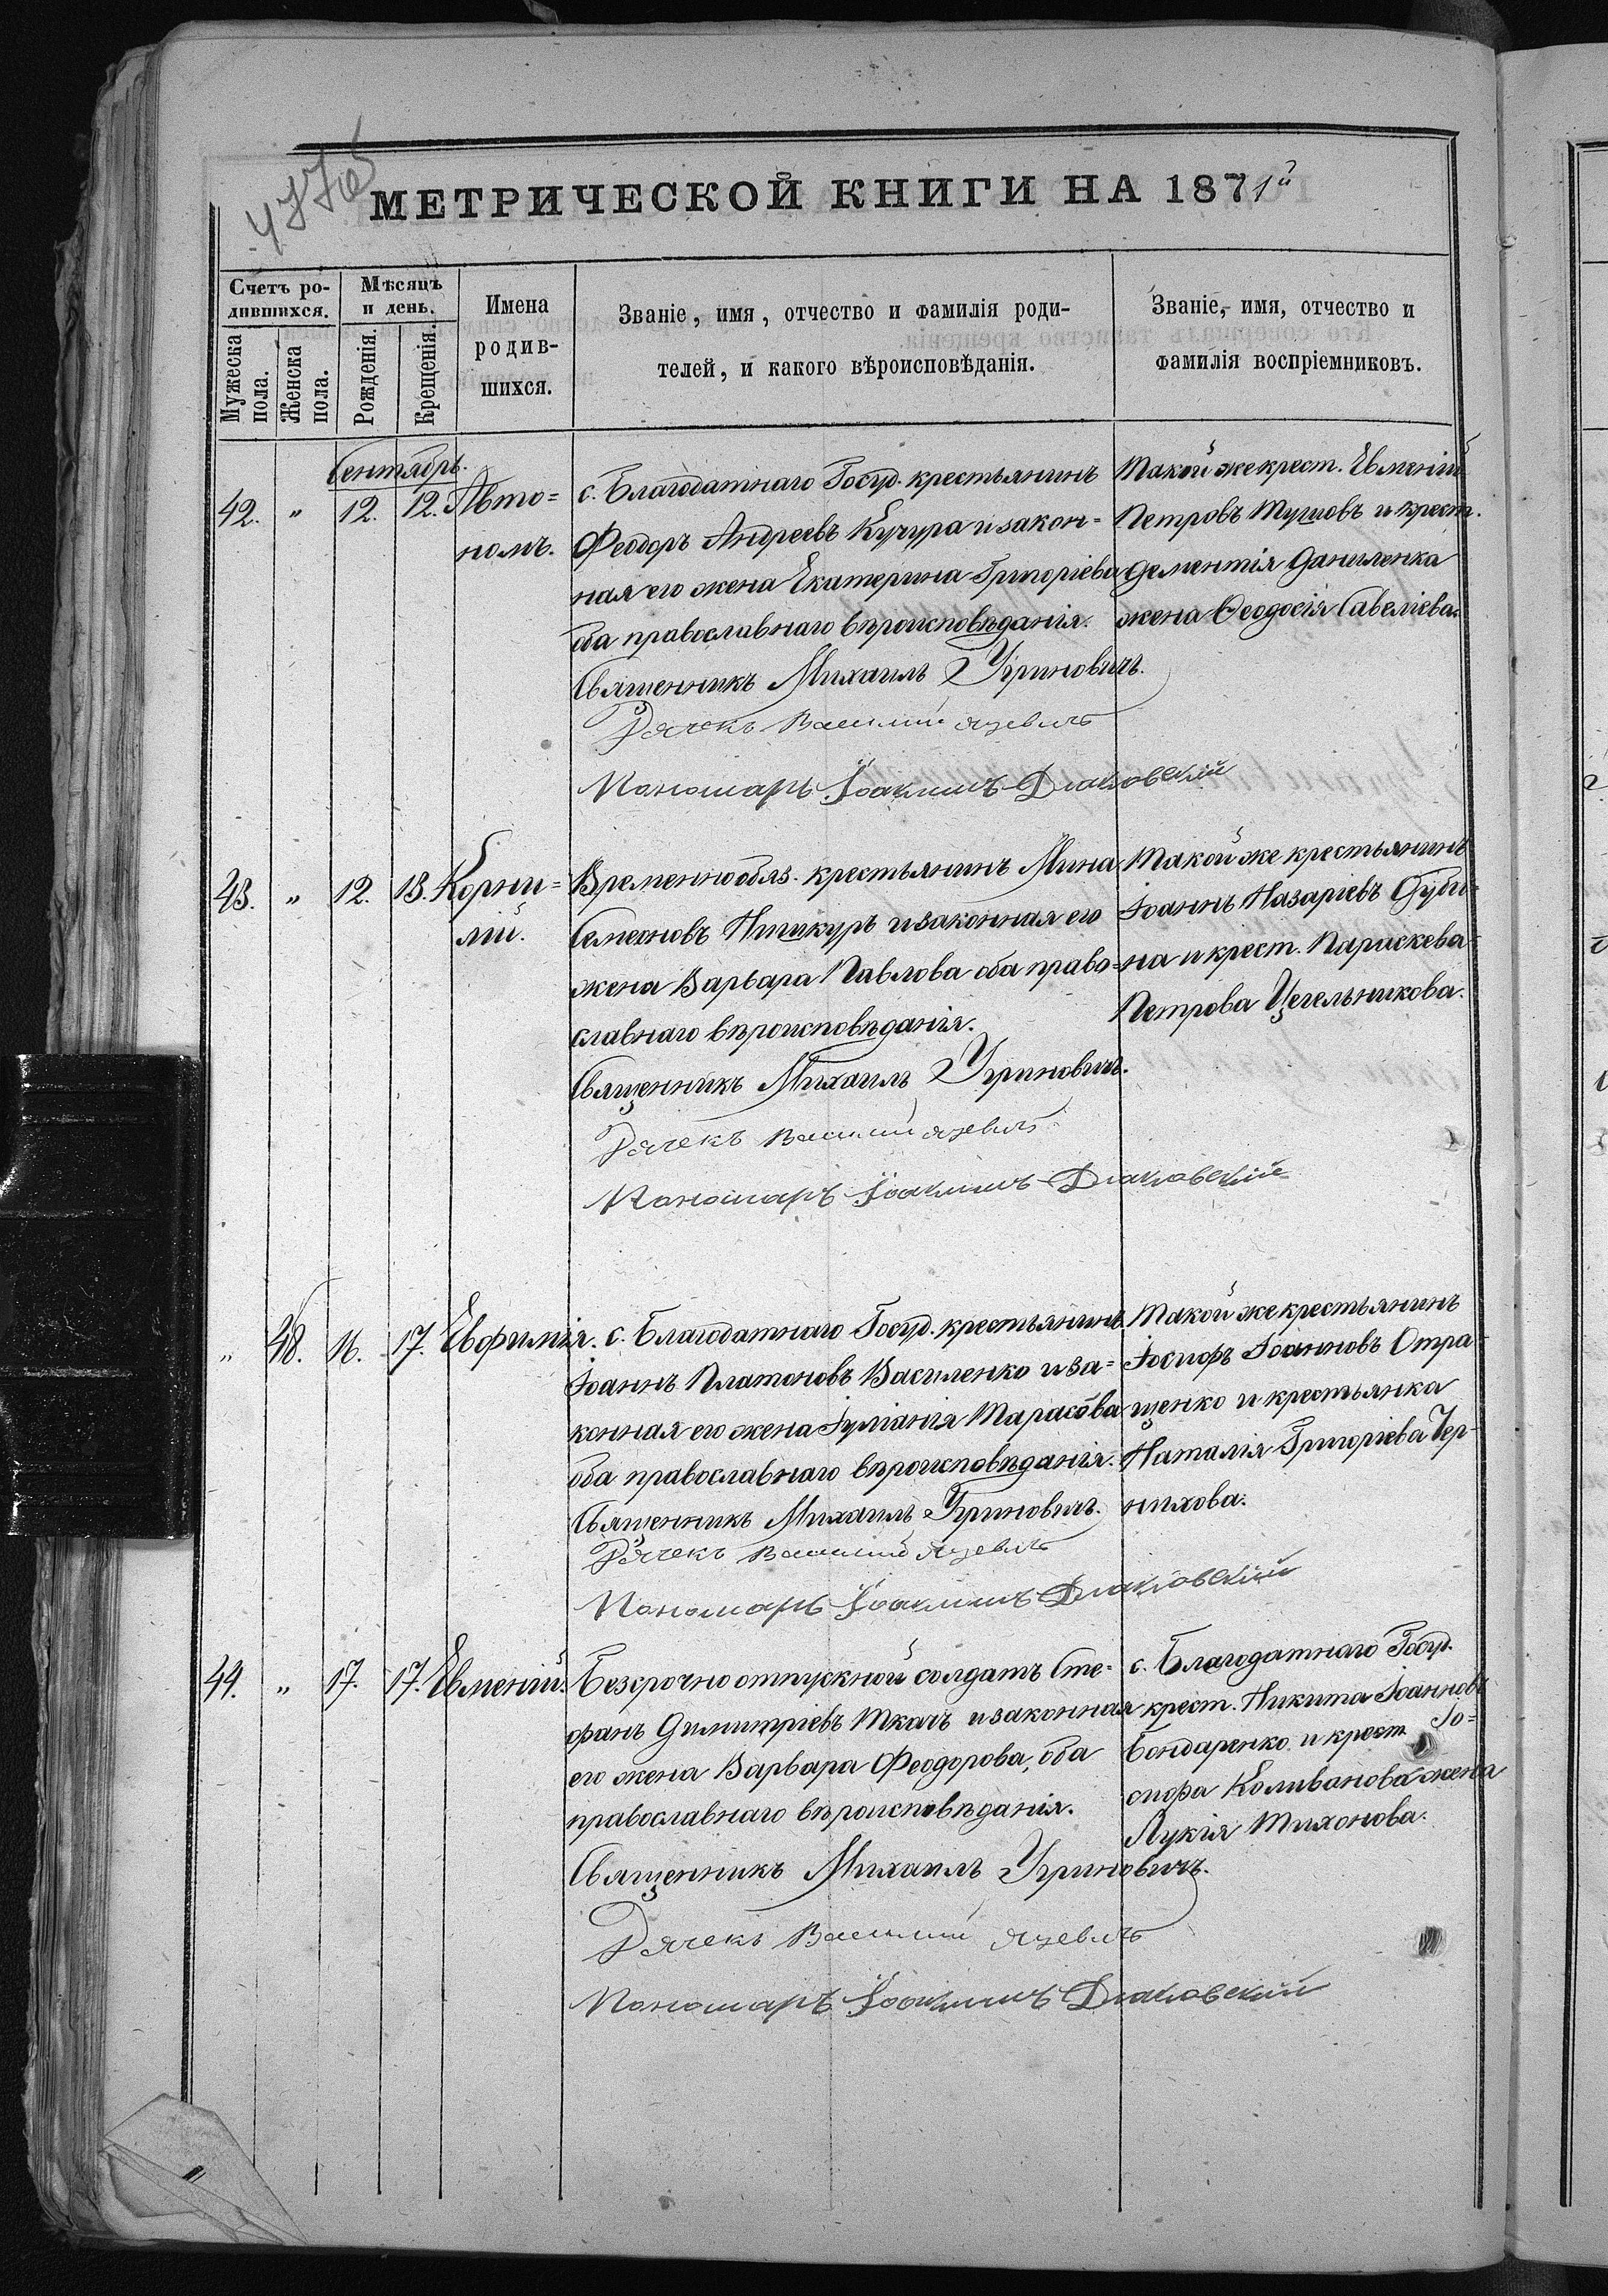 МЕТРИЧЕСКОЙ КНИГИ НА 1871й
Счетъ ро-
дившихся.
Мѣсяцъ
и день.
Мужеска
пола.
Женска
пола.
Рожденія.
Крещенія.
Имена
родив-
шихся.
Званіе, имя, отчество и фамилія роди-
телей, и какого вѣроисповѣданія.
Званіе, имя, отчество и
фамилія воспріемниковъ.
Сентябрь.
42. " 12. 12. Авто=
номъ.
с. Благодатнаго Госуд. крестьянинъ
Феодоръ Андреевъ Кучура и закон=
ная его жена Екатерина Григоріева
оба православнаго вѣроисповѣданія.
Священникъ Михаилъ Угриновичъ.
Дячекъ Василий Яцевичъ
Пономарь Іоакимъ Диаковский
Такой же крест. Евменій
Петровъ и крест.
Дементія Даниленка
жена Феодосія Савеліева.
43. " 12. 13. Корни=
лій.
Временнообяз. крестьянинъ Мина
Семеоновъ Ншикуръ и законная его
жена Варвара Павлова оба право=
славнаго вѣроисповѣданія.
Священникъ Михаилъ Угриновичъ.
Дячекъ Василий Яцевичъ
Пономарь Іоакимъ Диаковский
Такой же крестьянинъ
Іоаннъ Назаріевъ Дуби=
на и крест. Парискева
Петрова Цегельникова.
" 48. 16. 17. Евфимія.
с. Благодатнаго Госуд. крестьянинъ
Іоаннъ Платоновъ Василенко и за=
конная его жена Іуліанія Тарасова
оба православнаго вѣроисповѣданія.
Священникъ Михаилъ Угриновичъ.
Дячекъ Василий Яцевичъ
Пономарь Іоакимъ Диаковский
Такой же крестьянинъ
Іосифъ Іоанновъ Отра=
щенко и крестьянка
Наталія Григоріева Чер=
нихова.
44. " 17. 17. Евменій.
Безсрочно отпускной солдатъ Сте=
фанъ Димитріевъ Ткачъ и законная
его жена Варвара Феодорова, оба
православнаго вѣроисповѣданія.
Священникъ Михаилъ Угриновичъ.
Дячекъ Василий Яцевичъ
Пономарь Іоакимъ Диаковский
с. Благодатнаго Госуд.
крест. Никита Іоанновъ
Бондаренко и крест. Іо=
сифа Коливанова жена
Лукія Тихонова.